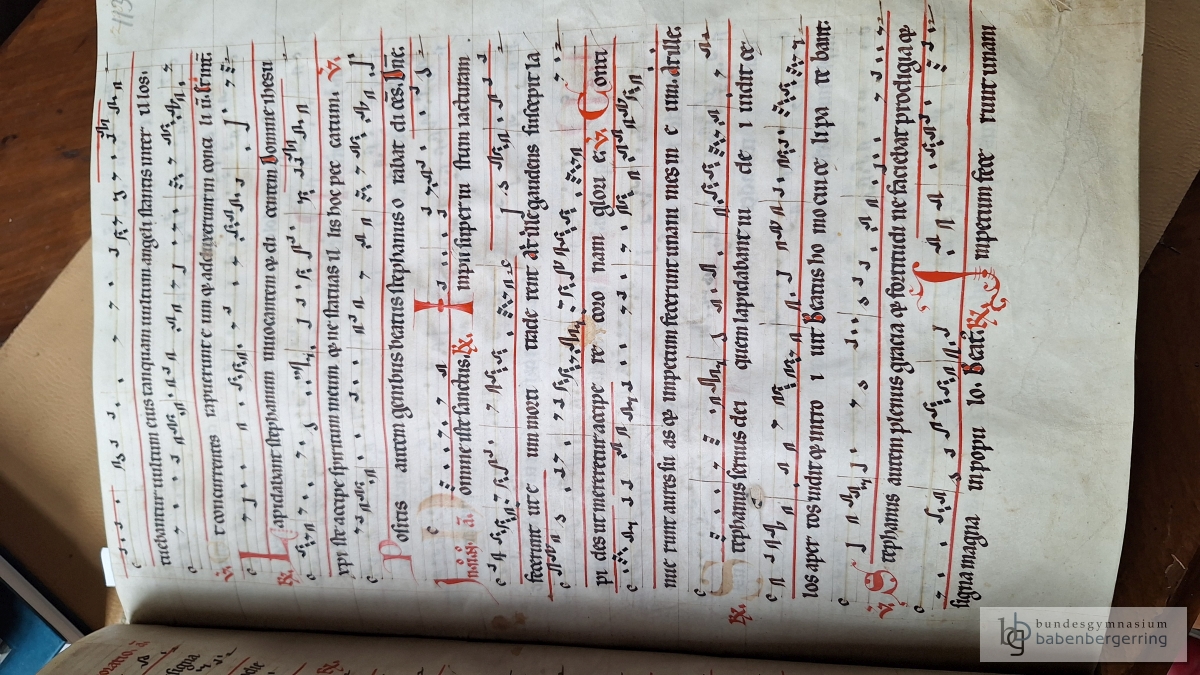 113
tuebantur uultum eius tanquam uultum angeli stantis inter il los.
et concurrentes rapuerunt e um et adduxerunt in conci li ū.
Lapidabant stephanum inuocantem et di centem domine iesu
xpi ste accipe spiritum meum et ne statuas il lis hoc pec catum. ℣.
Positis autem genibus beatus stephanus o rabat di cēs. Dn̄e.
In iii. noct. a. Domine iste sanctus. ℟. Impii super iu stum iacturam
fecerunt ut e um morti trade rent at ille gaudens suscepit la
pi des ut mereretur accipe re coro nam glori e. ℣. Conti
nue runt aures su as et impetum fecerunt unanimes in e um. at ille.
℟. Stephanus seruus dei quem lapidabant iu de i uidit ce
los aper tos uidit et intro i uit Beatus ho mo cui ce li pa te bant.
℣. Stephanus autem plenus gracia et fortitudi ne faciebat prodigia et
signa magna in popu lo. Beat. ℟. Impetum fece runt unani
bundesgymnasium
babenbergerring
bg
oratio. a.
signa
℟.